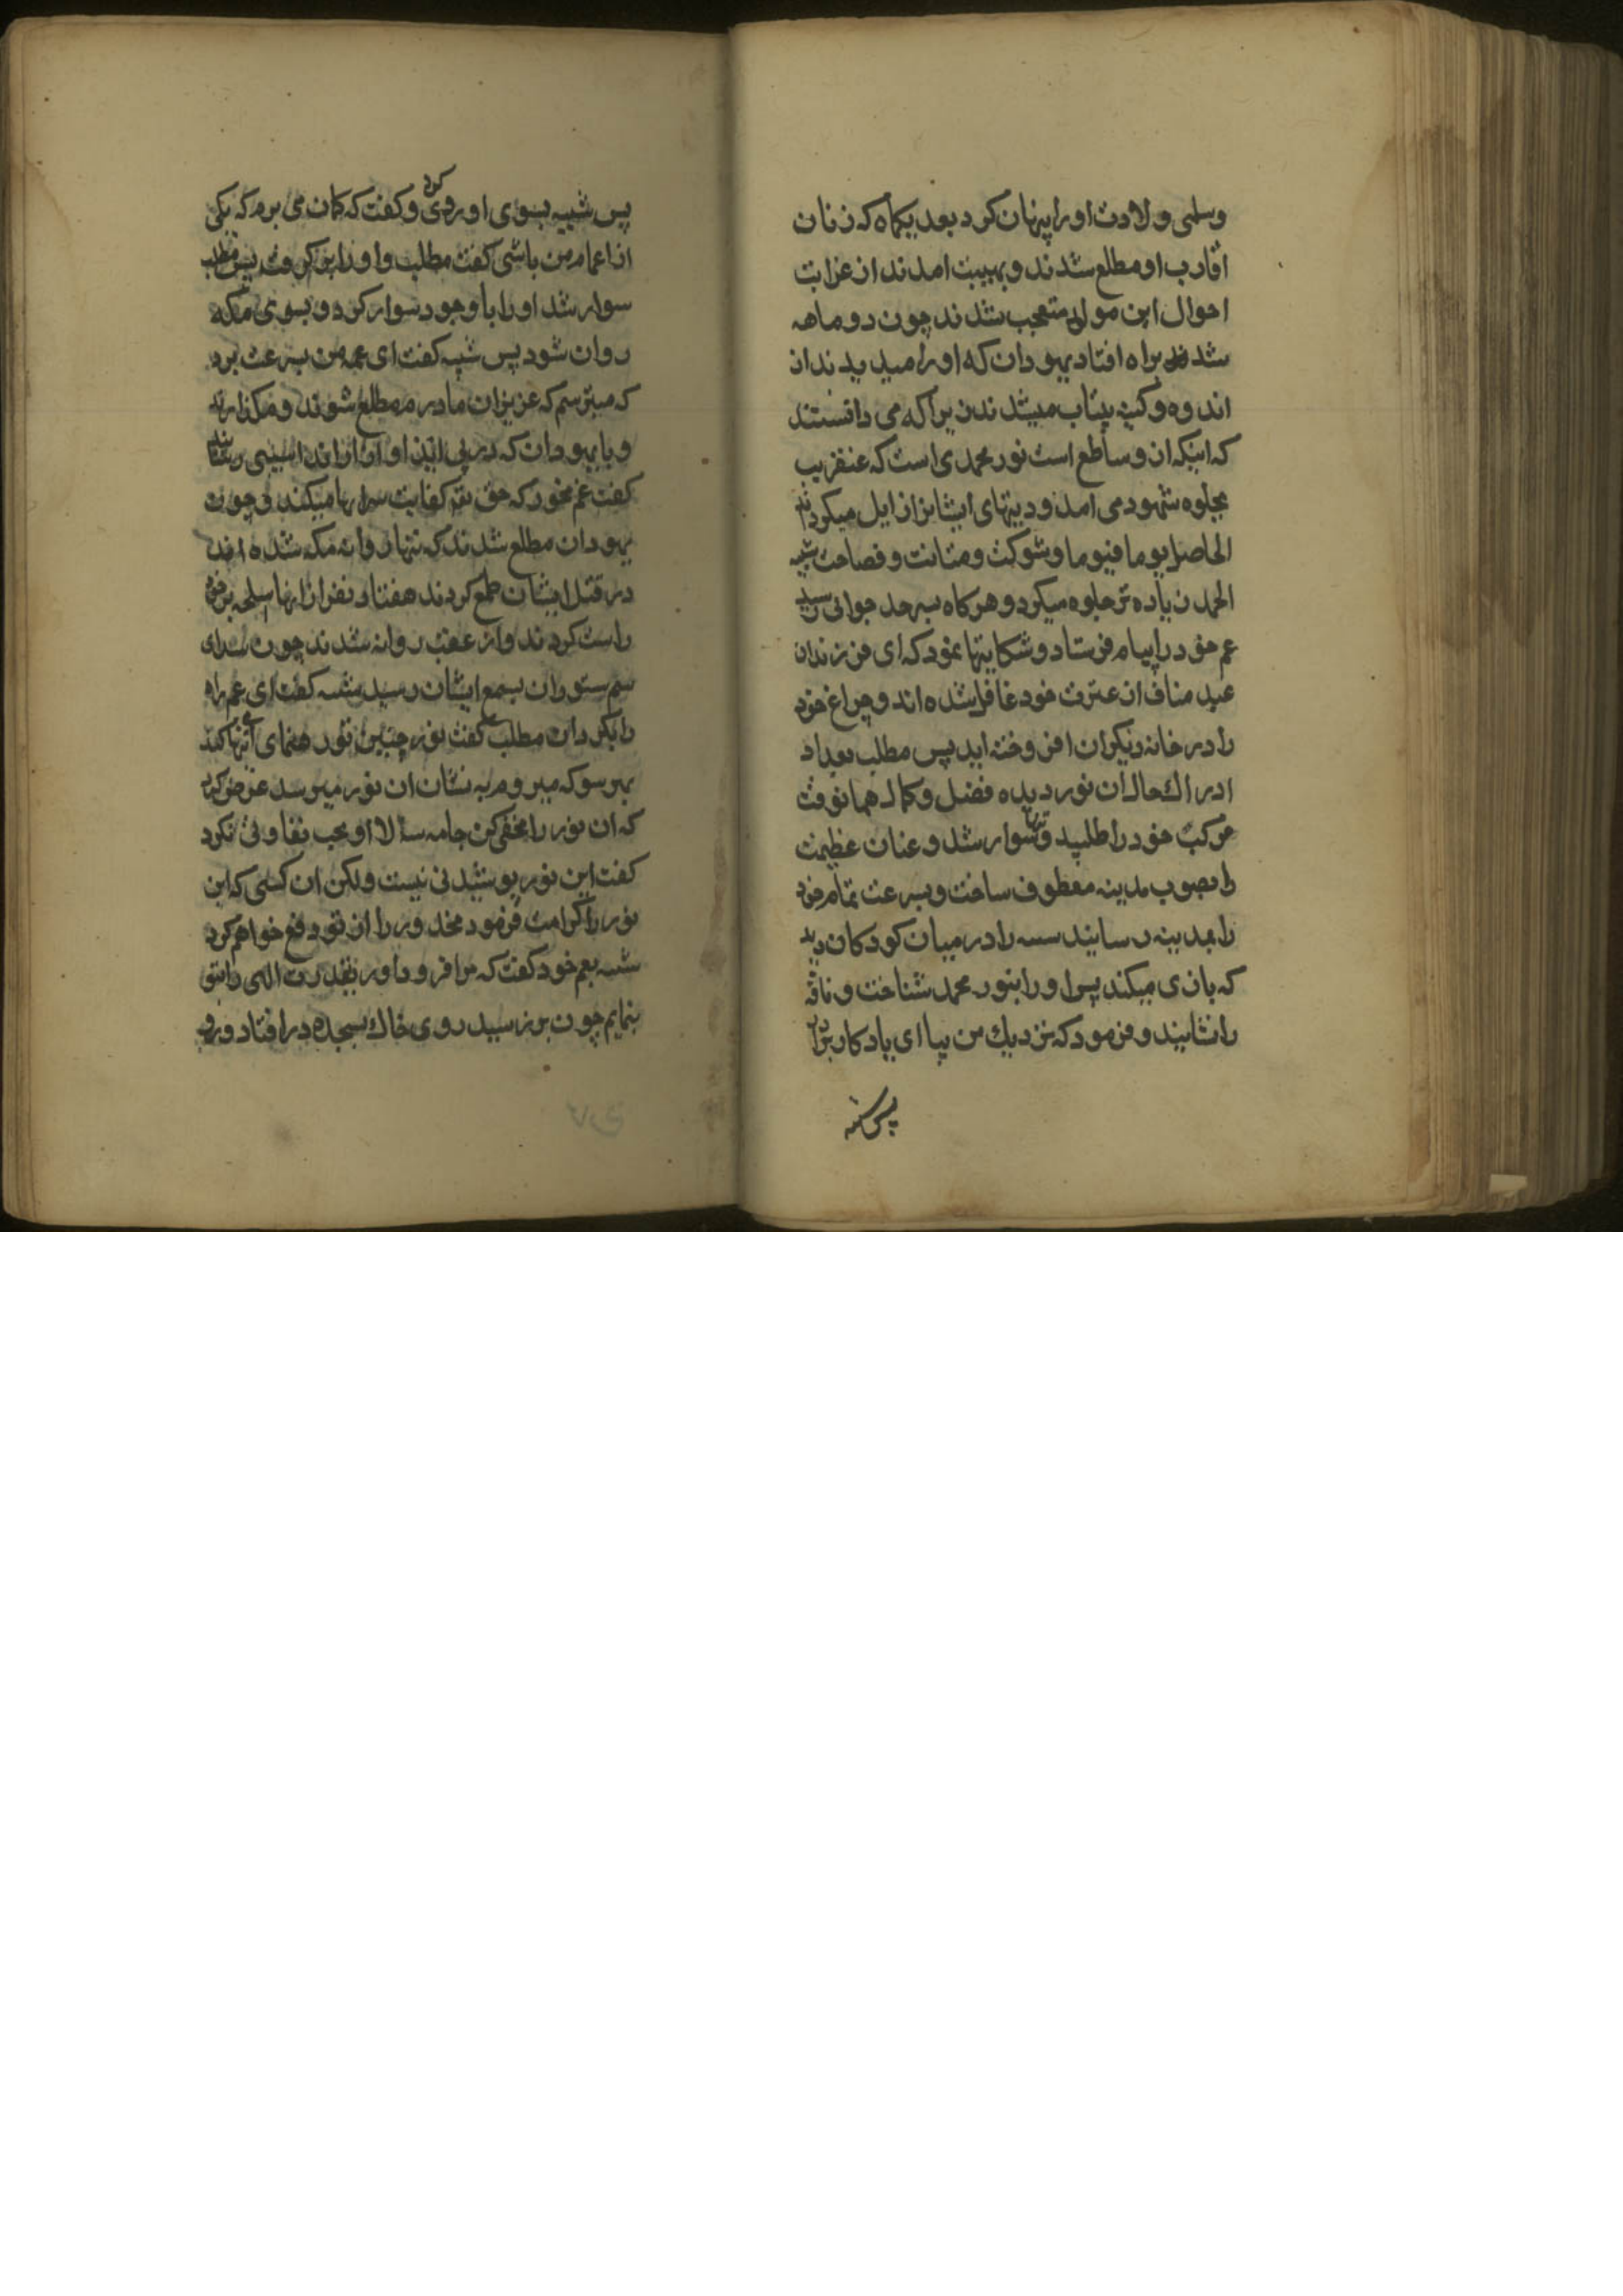 وسلمی ولادت اورا پنهان کرد بعد یکماه که زنان
اقارب او مطلع شدند و بهیبت امدند از غرابت
احوال این مولود متعجب شدند چون دو ماهه
شد براه افتاد یهودان که اورا میدیدند از
اندوه و کینه بیتاب میشدند زیرا که می دانستند
که اینکه ازو ساطع است نور محمدی است که عنقریب
بجلوه شهود می امد و دینهای ایشانرا زایل میکرد
الحاصل یوما فیوما و شوکت و متانت و فصاحت شیبه
الحمد زیاده تر جلوه میکرد و هرکاه بسرحد جوانی رسید
عم خود را پیام فرستاد و شکایتها نمود که ای فرزندان
عبد مناف از عترت خود غافل شده اند و چراغ خود
را در خانه دیکران افروخته اید پس مطلب بعد از
ادراك حال ان نور دیده فضل و کمال همانوقت
مرکب خود را طلبید و تنها سوار شد و عنان عظیمت
را بصوب مدینه معطوف ساخت و بسرعت تمام خود
را بمدینه رسانید شیبه را در میان کودکان دید
که بازی میکند پس اورا بنور محمد شناخت و ناقه
را نشانید و فرمود که نزدیك من بیا ای یادکار برادر
پس شیبه
پس شیبه بسوی او روی کرد و کفت که کمان می برم که یکی
از اعمام من باشی کفت مطلب و اورا بر کرفت پس مطلب
سوار شد اورا با وجود سوار کرد و بسوی مکه
روان شود پس شیبه کفت ای عمه من بسرعت برد
که میترسم که عزیزان مادرم مطلع شوند و مکذارند
و با یهودان که در پی او از انداسیبی رسانند
کفت غم مخور که حق تعه کفایت سرانها میکند و چون
یهودان مطلع شدند که تنها روانه مکه شده اند
در قتل ایشان طمع کردند هفتاد نفر از انها اسلحه بر خود
راست کردند و از عقب روانه شدند چون صدای
سم ستوران بسمع ایشان رسید شیبه کفت ای عم راه
را بکردان مطلب کفت نور جبین تو رهنمای انها کند
بهر سو که میروم به نشان ان نور میرسد عرض کرد
که ان نور را مخفی کن جامه بالا او بحب تفاوتی نکرد
کفت این نور پوشیدنی نیست ولکن ان کسی که این
نور را کرامت فرمود محذور را از تو دفع خواهم کرد
شیبه بعم خود کفت که مرا فرود اور تا قدرت الهی را بتو
بنمایم چون بر زمین رسید روی خاك بسجده در افتاد و رو